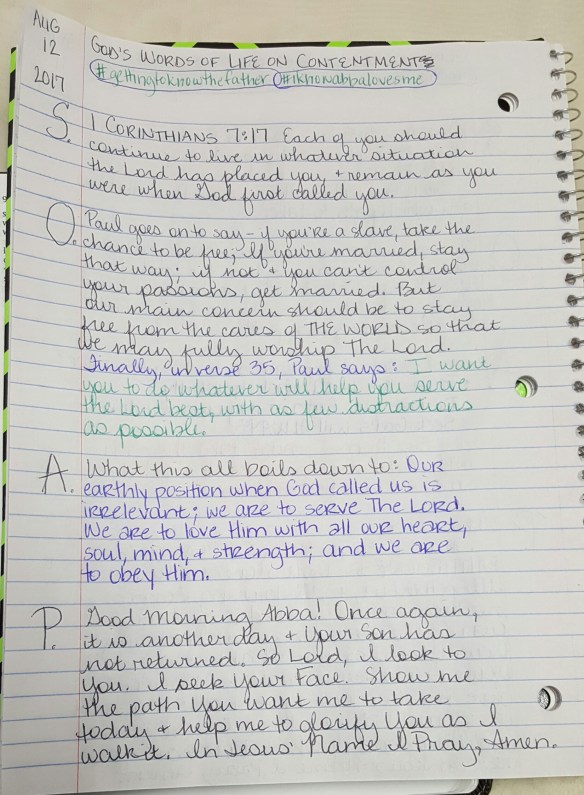 AUG
12
2017
GOD'S WORDS OF LIFE ON CONTENTMENT
#gettingtoknowthefather #iknowabbalovesme
S. 1 CORINTHIANS 7:17 Each of you should
continue to live in whatever situation
the Lord has placed you, + remain as you
were when God first called you.
O. Paul goes on to say - if you're a slave, take the
chance to be free; If you're married, stay
that way; if not + you can't control
your passions, get married. But
our main concern should be to stay
free from the cares of THE WORLD so that
we may fully worship The Lord.
Finally, in verse 35, Paul says: I want
you to do whatever will help you serve
the Lord best, with as few distractions
as possible.
A. What this all boils down to: OUR
earthly position when God called us is
irrelevant; we are to serve The Lord.
We are to love Him with all our heart,
soul, mind, + strength; and we are
to obey Him.
P. Good morning Abba! Once again,
it is another day + Your Son has
not returned. So Lord, I look to
You. I seek Your Face. Show me
the path You want me to take
today + help me to glorify You as I
walk it. In Jesus' Name I Pray, Amen.